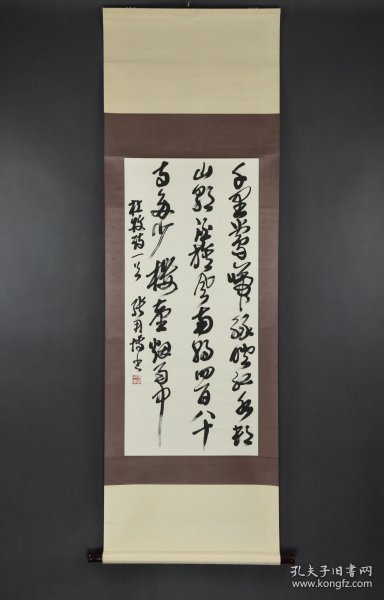 千里鶯啼綠映紅水村
山郭酒旗風南朝四百八十
寺多少樓臺烟雨中
杜牧詩一首 張用博書
孔夫子旧书网
www.kongfz.com